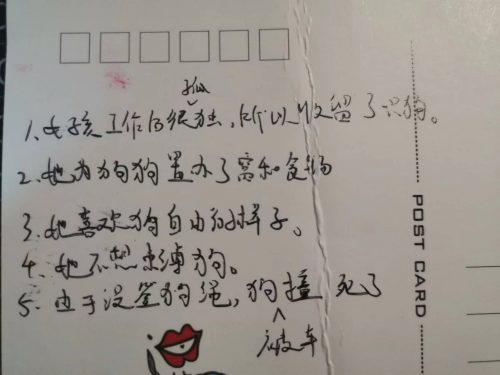 1.女孩工作的很孤独,所以收留了只狗。
2.她为狗狗置办了窝和食物
3.她喜欢狗自由的样子。
4.她不想束缚狗。
5.由于没签狗绳,狗被车撞死了
POST CARD